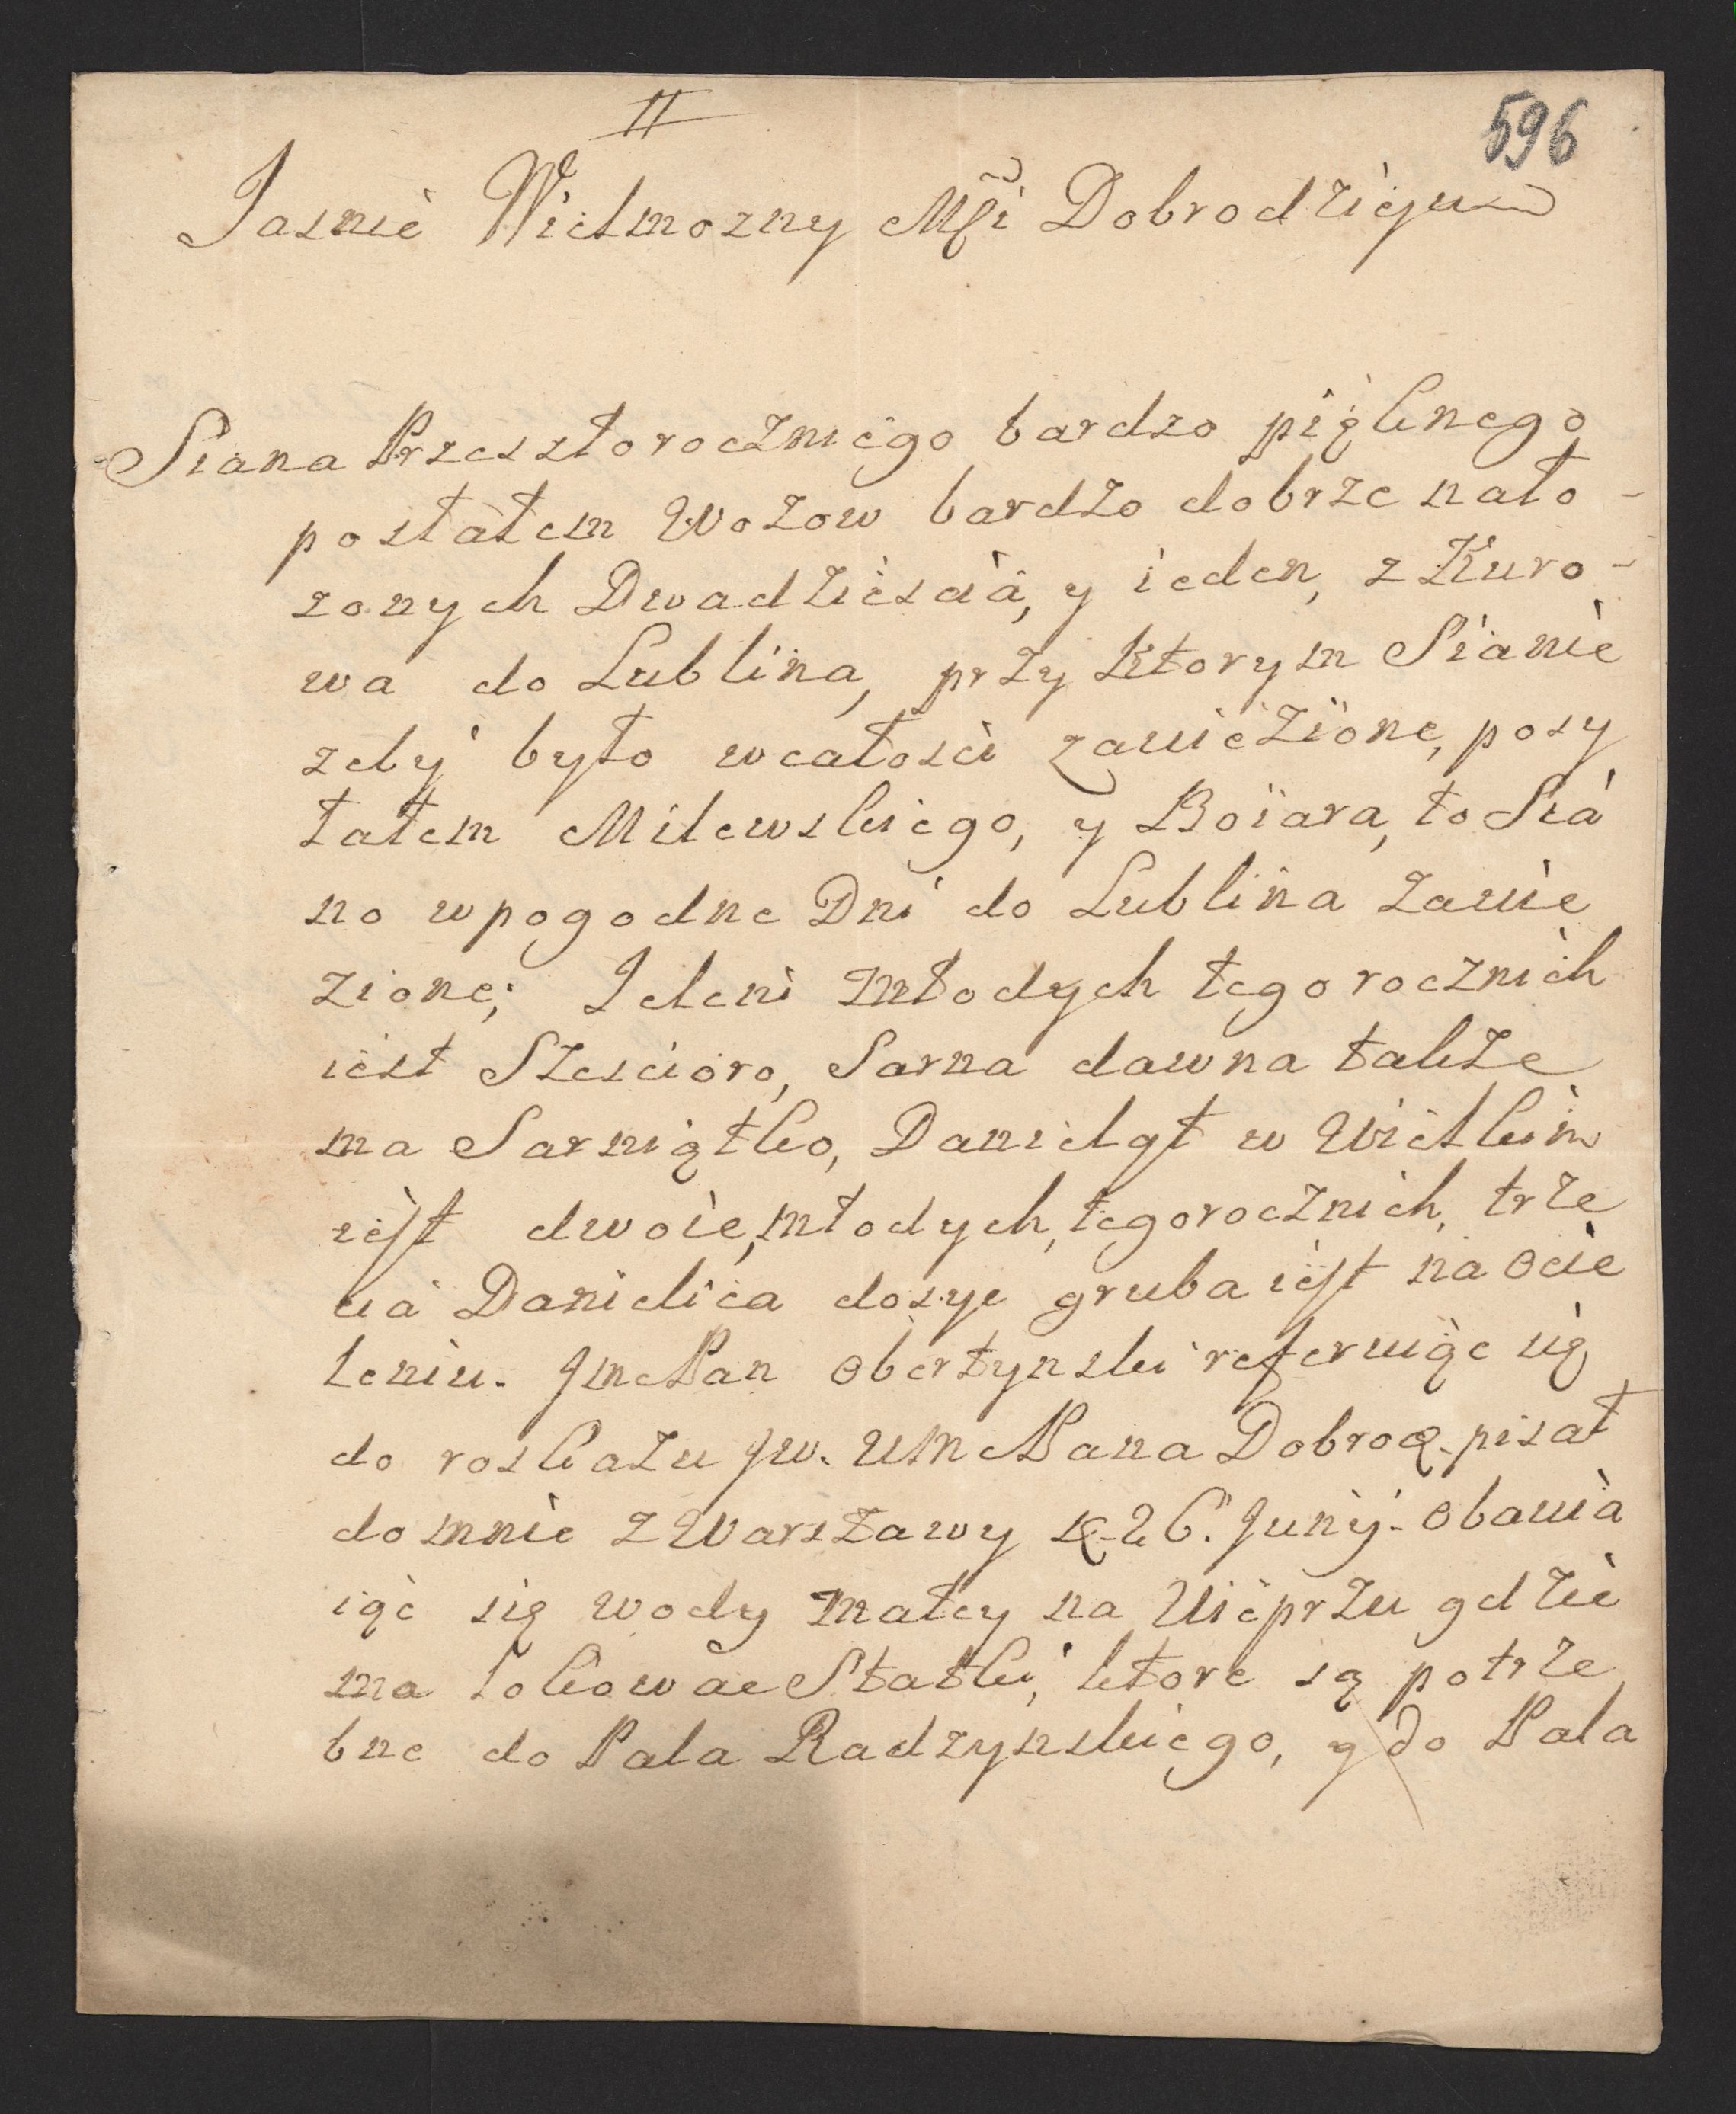 II
596
Jasnie Wielmozny Msci Dobrodzieju
Siana Przeszłorocznego bardzo pięknego
posłałem Wozow bardzo dobrze nało-
zonych Dwadziescia, y ieden, z Kuro-
wa do Lublina, przy ktorym Sianie
zeby było wcałosci zawiezione, posy
łałem Milewskiego, y Boiara, to Sia
no wpogodne Dni do Lublina zawie
zione; Ieleni młodych tegorocznich
iest Szescioro, Sarna dawna takze
ma Sarniątko, Danieląt w Wielkim
iest dwoie, młodych, tegorocznich, trze
cia Danielica dosyc gruba iest na Ocie
leniu. Jmc Pan Obertynski referuiąc się
do roskazu Jw. Wmc Pana Dobrod. pisał
do mnie z Warszawy d. 26. Junij. Obawia
iąc się wody małey na Wieprzu gdzie
ma lokowac Statki, ktore są potrze
bne do Pala Radzynskiego, y do Pala